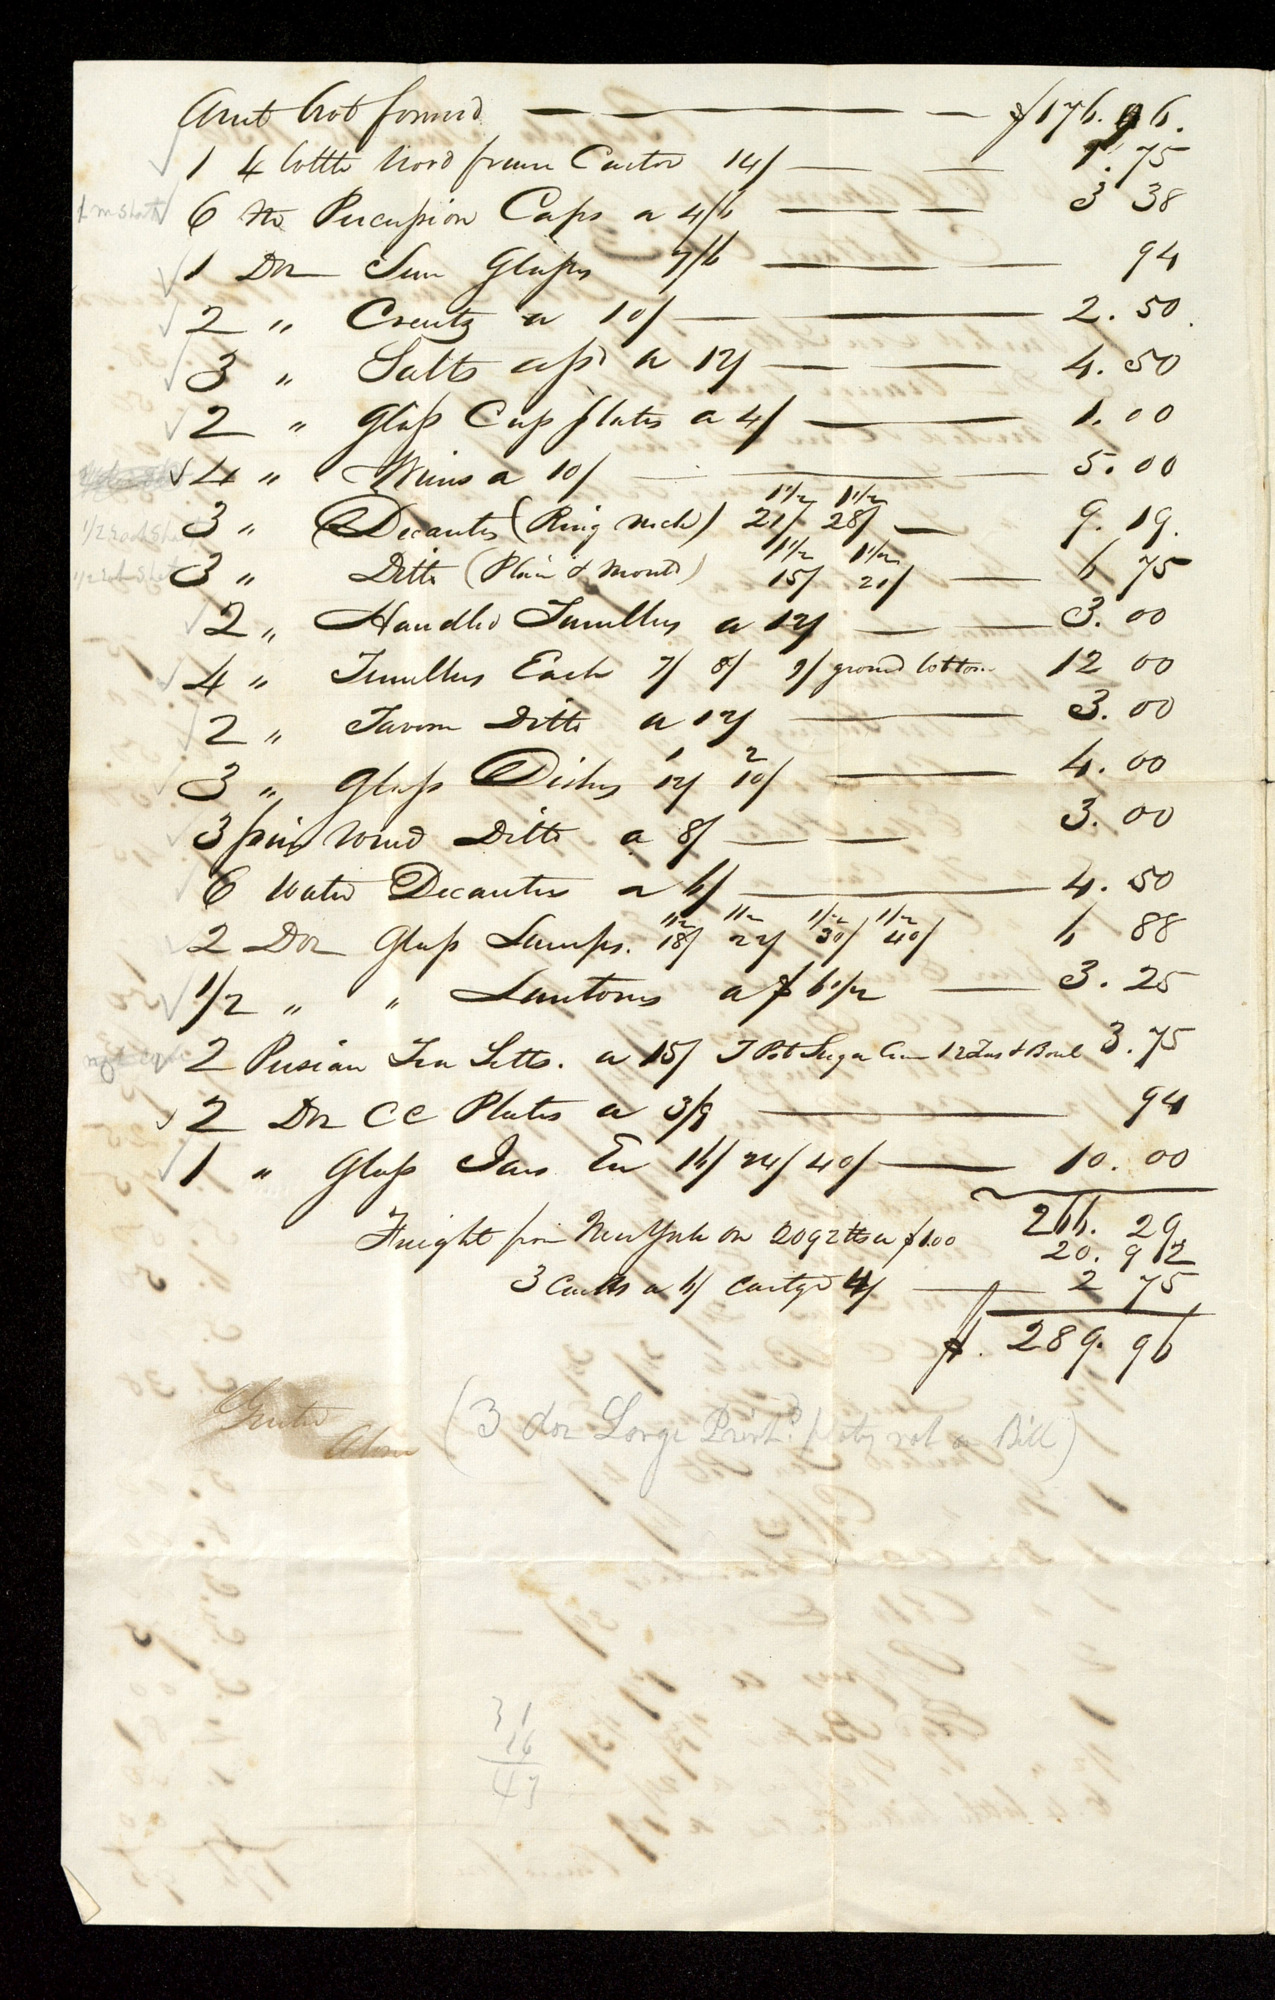 Amt brot forward $176.96.
1 4 bottle wood frame Castor 14/ 1.75
1 m short 6 M Percussion Caps a 4/6 3 38
1 Doz Sun Glasses 7/6 94
2 " Creutz a 10/ 2.50
3 " Salts assd a 12/ 4.50
2 " Glass Cup plates a 4/ 1.00
4 " Wines a 10/ 5.00
1/2 doz short 3 " Decanters (Ring neck) 1 1/2 21/ 1 1/2 28/ 9.19.
1/2 doz short 3 " Ditto (Plain & Mould) 1 1/2 15/ 1 1/2 21/ 6 75
2 " Handled Tumblers a 12/ 3.00
4 " Tumblers Each 7/ 8/ 9/ ground bottom 12 00
2 " Tavern Ditto a 12/ 3.00
3 " Glass Dishes 1 12/ 2 10/ 4.00
3 pair Wood Ditto a 8/ 3.00
6 Water Decanters a 6/ 4.50
2 Doz Glass Lamps. 1/2 18/ 1/2 22/ 1/2 30/ 1/2 40/ 6 88
1/2 " " Lanterns a $6 1/2 3.25
2 Persian Tea Setts. a 15/ T Pot Sugar Cream 12 Teas & Bowl 3.75
2 Doz CC Plates a 3/9 94
1 " Glass Jars Ea 16/ 24/ 40/ 10.00
266.29
Freight from New York on 2092 lb a $1.00 20.92
3 Casks a 6/ cartge 4/ 2 75
$. 289.96
(3 doz Large Print.d plates not on Bill)
31
16
47